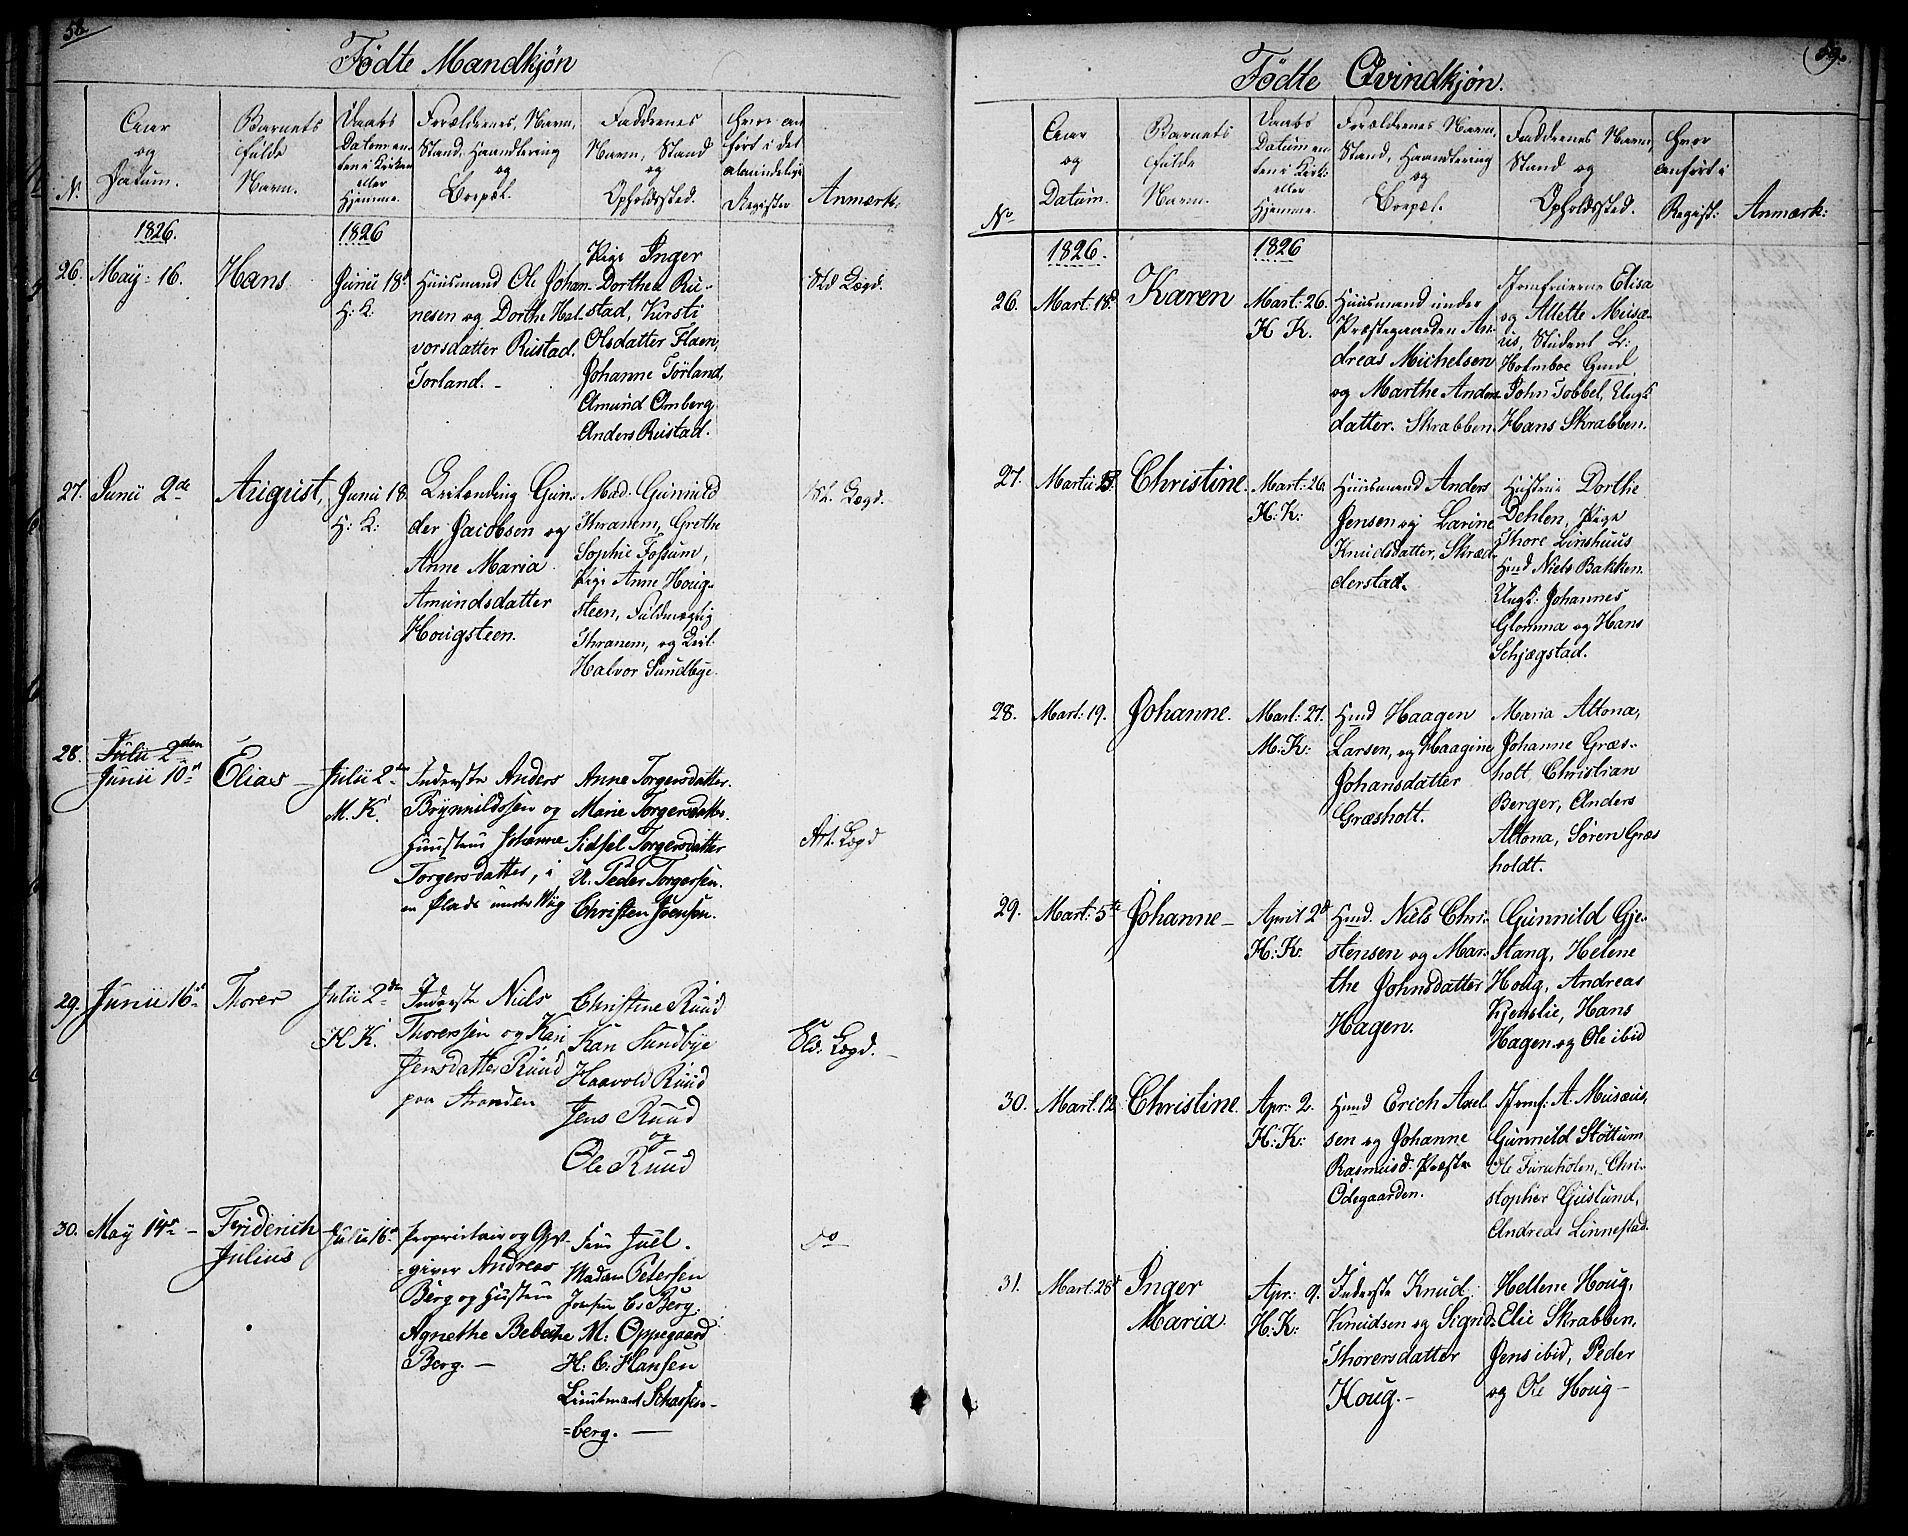 58.
Fødte Mandkjøn
N.
Aar
og
Datum.
Barnets
fulde
Navn.
Daabs
Datum en-
ten i Kirken
eller
Hjemme.
Forældrenes, Navn,
Stand, Haandtering
og
Boepæl.
Faddernes
Navn, Stand
og
Opholdssted.
Hvor an
ført i det
almindelige
Register
Anmærk.
1826.
1826
26.
May 16.
Hans
Junii 18d
H: K.
Huusmand Ole Johan-
nesen og Dorthe Hal-
vorsdatter Rustad.
Torland. -
Pige Inger
Dorthea Ru-
stad, Kirsti
Olsdatter Flaen,
Johanne Törland,
Amund Omberg
Anders Rustad.
Lægd.
27.
Junii 2de
August,
Junii 18.
H: K:
Gun-
der Jacobsen og
Anne Maria
Amundsdatter
Hougsteen.
Mad. Gunnild
Thranem, Grethe
Sophie Fossum,
Pige Anne Houg-
steen, Fuldmægtig
Thranem, og
Halvor Sundbye.
Lægd.
28.
Julii 2den
Junii 10n
Elias
Julii 2den
M. K.
Inderste Anders
Brynnildssen og
Huustrue Johanne
Torgersdatter, i
en Plads under Wiig
Anne Torgersdatter.
Marie Torgersdatter.
Sidsel Torgersdatter
U. Peder Torgersen.
Christen Joensen.
Art. Lægd
29.
Junii 16d
Thorer
Julii 2den
H. K.
Inderste Niels
Thorerssen og Kari
Jensdatter Ruud
paa Stranden
Christine Ruud
Kari Sundbye
Haavold Ruud
Jens Ruud
og
Ole Ruud
Eld. Lægd. -
30.
May 14n -
Friderich
Julius
Julii 16n
Proprietair og Gjest-
=giver Andreas
Berg og Hustrue
Agnethe Bebecke
Berg. -
Frue Juel.
Madam Petersen
Jomfru Cs Berg.
M: Oppegaard
H. C. Hansen
Lieutenant Scharffen-
=berg. -
do
59.
Fødte Qvindkjøn.
No
Aar
og
Datum.
Barnets
fulde
Navn.
Daabs
Datum en-
ten i Kirk:
eller
Hjemme.
Forældrenes Navn,
Stand, Haandtering
og
Boepæl.
Faddernes Navn,
Stand og
Opholdssted.
Hvor
anført i
Regist:
Anmærk:
1826.
1826
26.
Mart: 18d
Karen
Mart: 26.
H K.
Huusmand under
Præstegaarden An-
dreas Michelsen
og Marthe Anders-
datter. Skrabben.
Jomfruerne Elisa
og Allette Musæ-
us, Student L:
Holmboe Gmd
John Tobbel, Ungk
Hans Skrabben.
27.
Martii 13.
Christine.
Mart: 26.
H: K:
Huusmand Anders
Jensen og Larine
Knudsdatter, Skræd-
derstad.
Hustrue Dorthe
Dehlen, Pige
Thore Linshuus
Hmd Niels Bakken.
Ungk: Johannes
Glomma og Hans
Schjægstad.
28.
Mart: 19.
Johanne.
Mart: 27.
M: K:
Hmd Haagen
Larsen, og Haagine
Johansdatter
Græsholt.
Maria Altona,
Johanne Græs-
holt, Christian
Berger, Anders
Altona, Søren Græs
holdt.
29.
Mart: 5te
Johanne -
April 2d
H: K:
Hmd. Niels Chri-
stensen og Mar-
the Johnsdatter
Hagen.
Gunnild Gje-
stang, Helene
Houg, Andreas
Kjenslie, Hans
Hagen og Ole ibid
30.
Mart. 12
Christine.
Apr: 2.
H: K:
Hmd Erich Axel-
sen og Johanne
Rasmusd: Præste
Ödegaarden.
Jomf: A. Musæus,
Gunnild Stöttum
Ole Furuholen, Chri-
stopher Gjuslund,
Andreas Linnestad.
31.
Mart: 28d
Inger
Maria
Apr: 9.
H: K:
Inderste Knud
Knudsen og Signe
Thorersdatter
Houg. -
Hellene Houg,
Elie Skrabben,
Jens ibid, Peder
og Ole Houg -